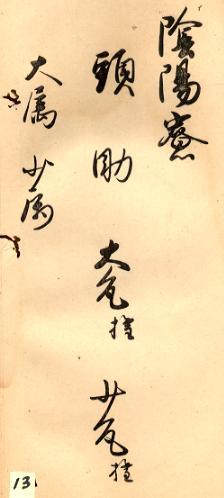 陰陽寮
頭 助 大允権 少允権
大属 少属
13